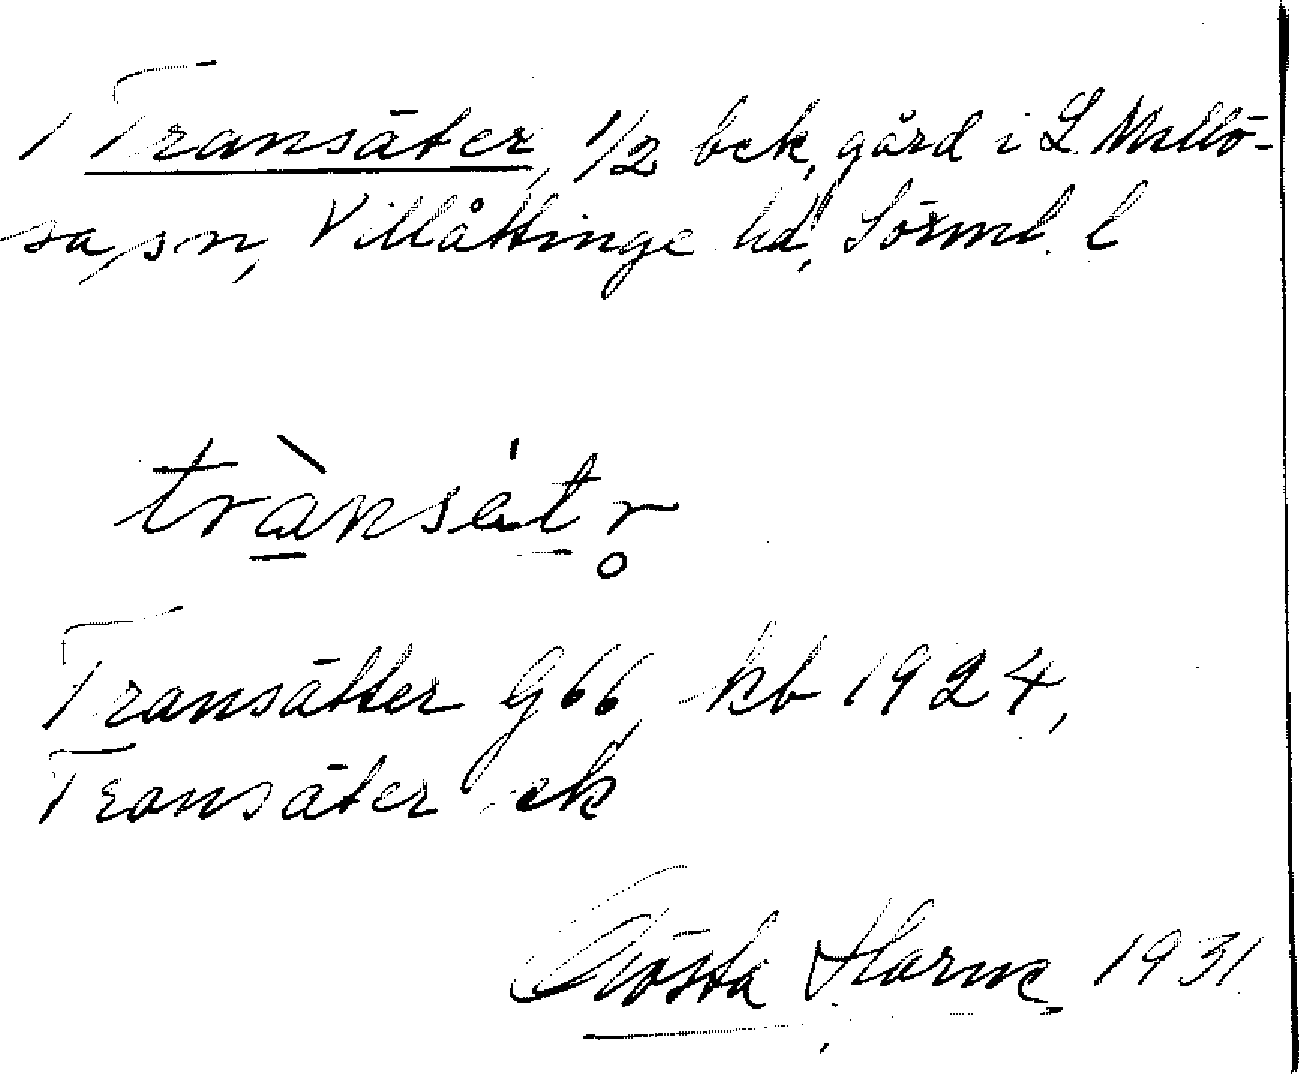 Transäter, 1/2 bek, gård i L Mellö-
sa, sn, Villåttinge hd, Sörml. l
trànsä́tr̥
Transätter G66, kb 1924,
Transäter ek
Gösta Harne, 1931